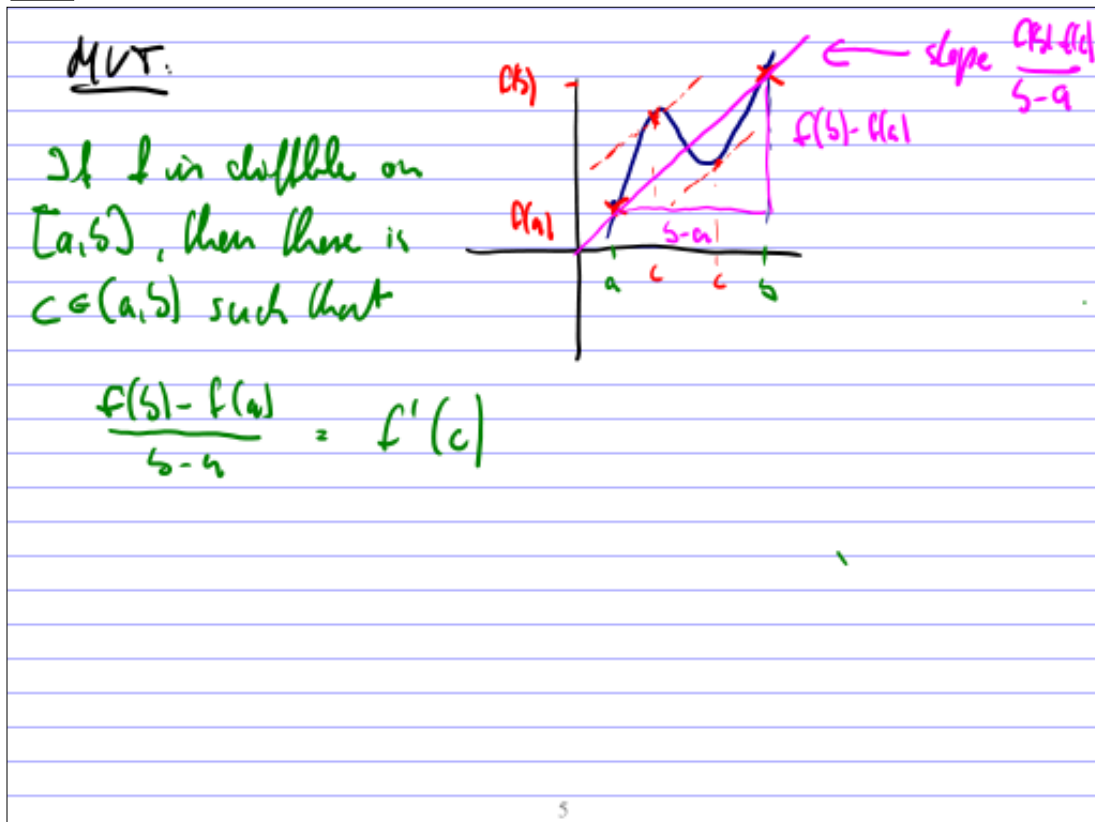 MVT:
If f is diffble on
[a,b], then there is
c ∈ (a,b) such that
f(b) - f(a)
b - a
= f'(c)
f(b)
f(a)
a
c
c
b
b-a
f(b) - f(a)
← slope
f(b) - f(a)
b-a
5